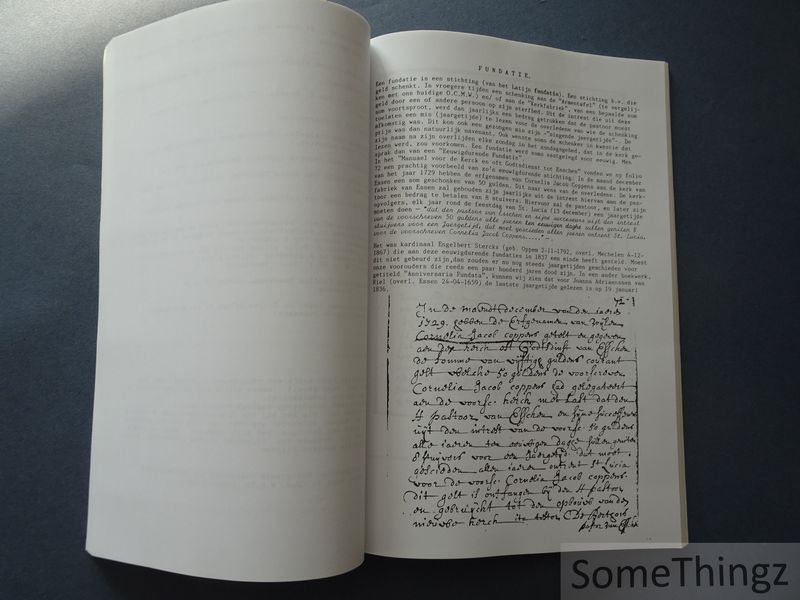 FUNDATIE.
Een fundatie is een stichting (van het Latijn fundatia). Een stichting b.v. die
geld schenkt. In vroegere tijden een schenking aan de "Armentafel" (te vergelij-
ken met ons huidige O.C.M.W.) en/ of aan de "Kerkfabriek", van een bepaalde som
geld door een of andere persoon op zijn sterfbed. Uit de intrest die uit deze
som voortsproot, werd dan jaarlijks een bedrag getrokken dat de pastoor moest
toelaten een mis (jaargetijde) te lezen voor de overledene van wie de schenking
afkomstig was. Dit kon ook een gezongen mis zijn "zingende jaargetijde"-. De
prijs was dan natuurlijk navenant. Ook wenste soms de schenker in kwestie dat
zijn naam na zijn overlijden elke zondag in het zondagsgebed, dat in de kerk ge-
lezen werd, zou voorkomen. Een fundatie werd soms vastgelegd voor eeuwig. Men
sprak dan van een "Eeuwigdurende Fundatie".
In het "Manuael voor de Kerck en oft Godtsdienst tot Esschen" vonden we op folio
72 een prachtig voorbeeld van zo'n eeuwigdurende stichting. In de maand december
van het jaar 1729 hebben de erfgenamen van Cornelis Jacob Coppens aan de kerk van
Essen een som geschonken van 50 gulden. Dit naar wens van de overledene. De kerk-
fabriek van Essen zal gehouden zijn jaarlijks uit de intrest hiervan aan de pas-
toor een bedrag te betalen van 8 stuivers. Hiervoor zal de pastoor, en later zijn
opvolgers, elk jaar rond de feestdag van St. Lucia (13 december) een jaargetijde
moeten doen - "dat den pastoor van Esschen ende sijne successeurs uijt den intrest
van de voorschreven 50 guldens alle jaeren ten eeuwigen daghe sullen genieten 8
stuijvers voor een Jaergetijd, dat moet geschieden alle jaeren ontrent St. Lucia,
voor de voorschreven Cornelia Jacob Coppens....."-.
Het was kardinaal Engelbert Sterckx (geb. Oppem 2-11-1792, overl. Mechelen 4-12-
1867) die aan deze eeuwigdurende fundaties in 1837 een einde heeft gesteld. Moest
dit niet gebeurd zijn,dan zouden er nu nog steeds jaargetijden geschieden voor
onze voorouders die reeds een paar honderd jaren dood zijn. In een ander boekwerk,
getiteld "Anniversaria Fundata", kunnen wij zien dat voor Joanna Adriaenssen van
Kiel (overl. Essen 24-04-1659) de laatste jaargetijde gelezen is op 19 januari
1836.
72-
In de maendt december van den iaere
1729 hebben de Erfgenamen van wijlen
Cornelia Jacob coppens getelt en gegeven
aen dese kerck oft Godtsdinst van Esschen
de somme van vijftigh guldens courant
gelt welcke 50 guldens de voorschreven
Cornelia Jacob coppens had gelegateert
aen de voorsc. kerck met Last dat den
H pastoor van Esschen en sijne successeurs
uijt den intrest van de voorsc. 50 guldens
alle iaeren ten eeuwigen dage sullen genieten
8 stuijvers voor een Jaergetijd dat moet
geschieden allen iaeren ontrent St Lucia
voor de voorsc. Cornelia Jacob coppens.
dit gelt is ontfangen bij den H pastoor
en gebruijckt tot den opbouw van den
nieuwe kerck ita testor C De Hertoghs
pastor van Essche
SomeThingz